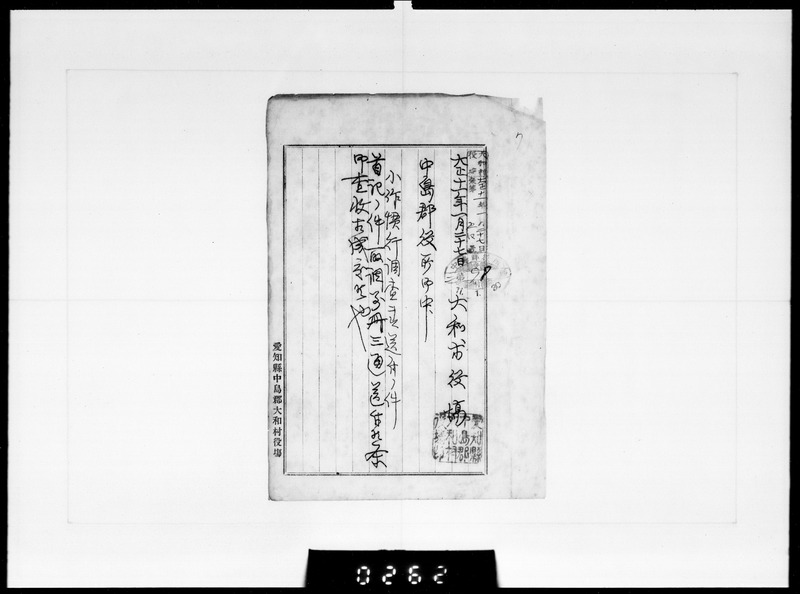 大正十一年一月二十七日
大和村役場
中島郡役所御中
小作慣行調査書送付ノ件
首記ノ件取調別冊三通送付候条
御査收相成度候也
愛知縣中島郡大和村役場
0262